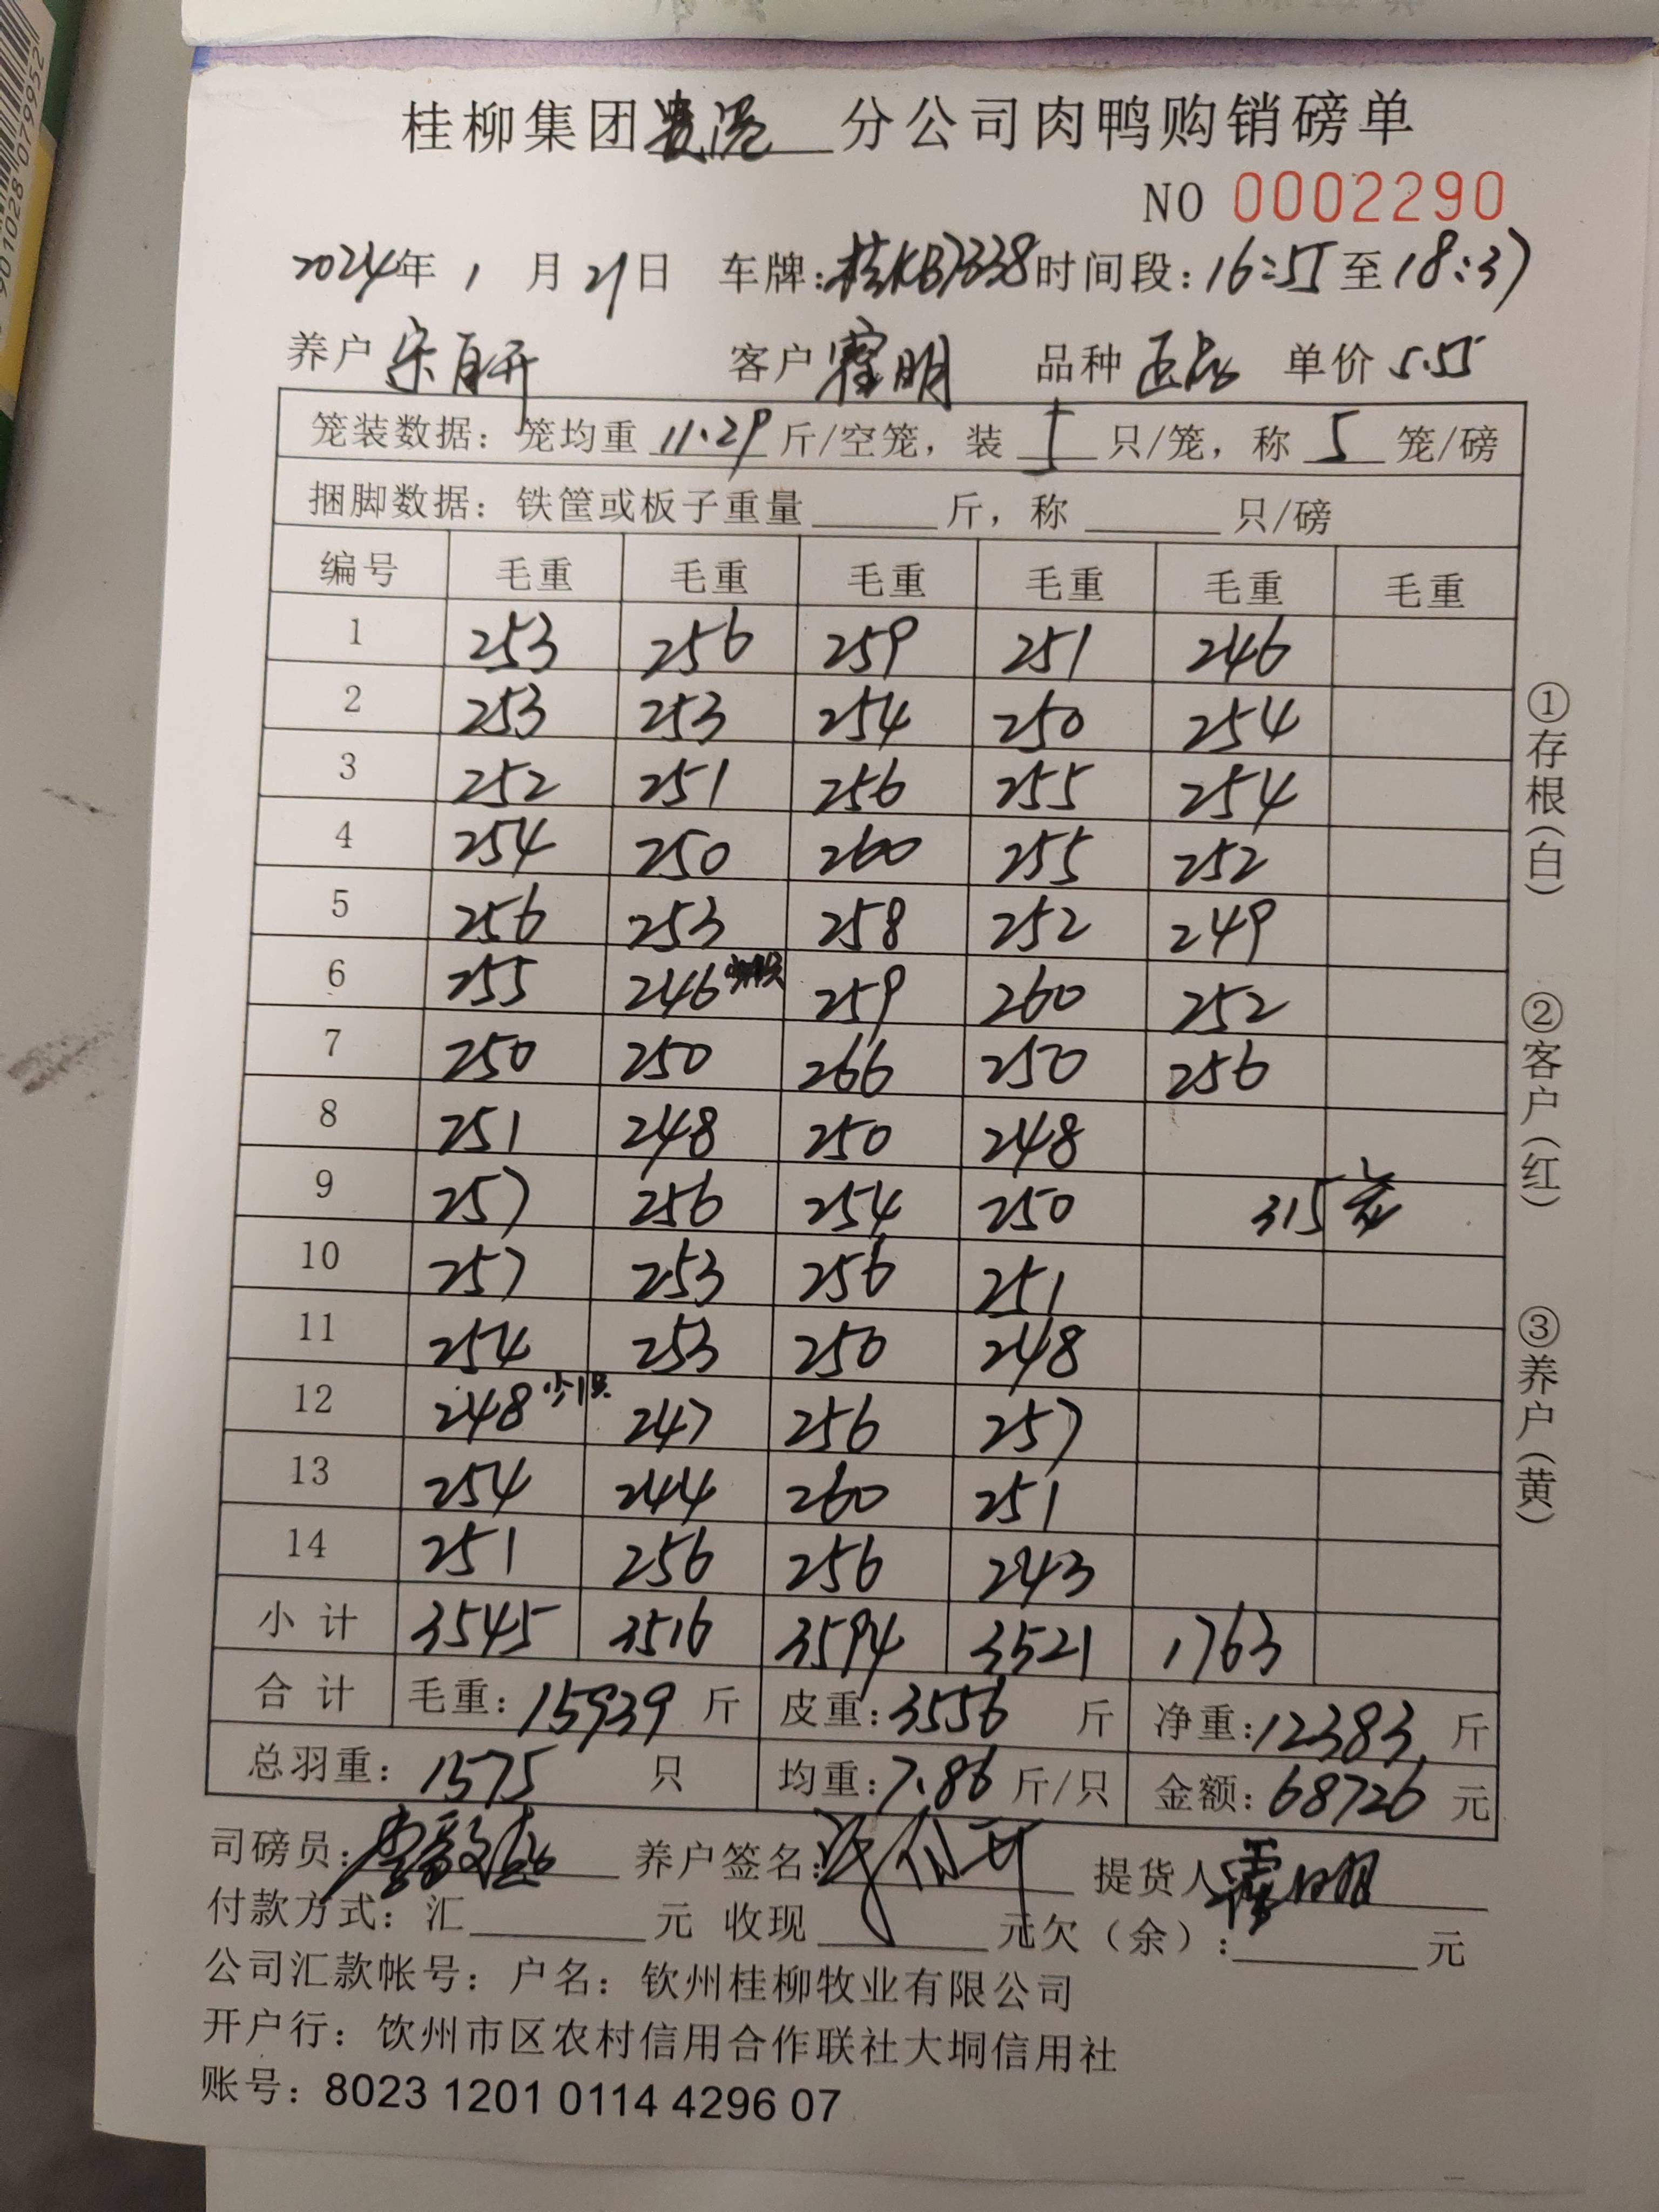 桂柳集团贵港分公司肉鸭购销磅单
NO 0002290
2024年 1 月 21日 车牌:桂KB7338 时间段:16:55至18:37
养户 宋自开 客户 霍明 品种 正品 单价 5.55
笼装数据: 笼均重 11.29 斤/空笼, 装 5 只/笼, 称 5 笼/磅
捆脚数据: 铁筐或板子重量______斤, 称______只/磅
编号 毛重 毛重 毛重 毛重 毛重 毛重
1 253 256 259 251 246
2 253 253 254 250 254
3 252 251 256 255 254
4 254 250 260 255 252
5 256 253 258 252 249
6 255 246 259 260 252
7 250 250 266 250 256
8 251 248 250 248
9 257 256 254 250 315笼
10 257 253 256 251
11 254 253 250 248
12 248 少1只 247 256 257
13 254 244 260 251
14 251 256 256 243
小计 3545 3516 3594 3521 1763
合计 毛重: 15939 斤 皮重: 3556 斤 净重: 12383 斤
总羽重: 1575 只 均重: 7.86 斤/只 金额: 68726 元
司磅员: 养户签名: 提货人 霍明
付款方式: 汇______元 收现______元欠(余):______元
公司汇款帐号: 户名: 钦州桂柳牧业有限公司
开户行: 饮州市区农村信用合作联社大垌信用社
账号: 8023 1201 0114 4296 07
①存根(白)
②客户(红)
③养户(黄)
9010280799521